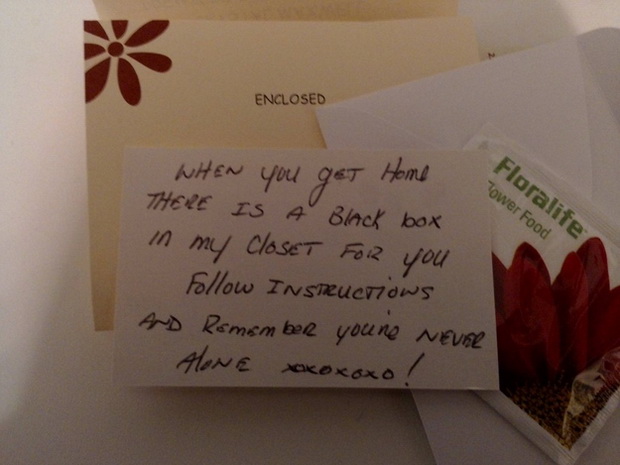 ENCLOSED
WHEN YOU GET HOME
THERE IS A BLACK BOX
IN MY CLOSET FOR YOU
FOLLOW INSTRUCTIONS
AND REMEMBER YOU'RE NEVER
ALONE XOXOXOXO!
Floralife
Flower Food